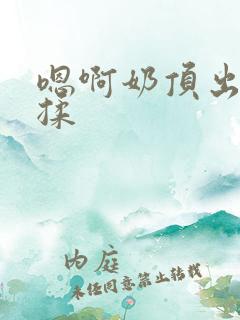 嗯啊奶頂出
揉
内庭
未经同意禁止转载